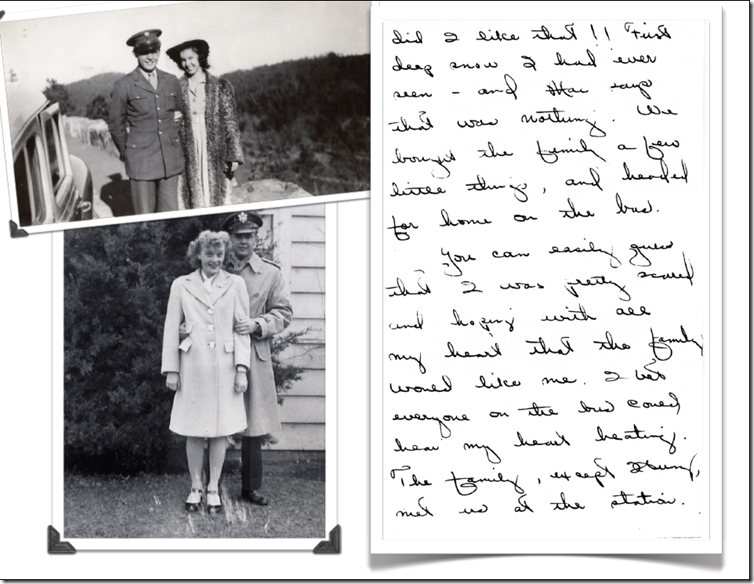 did I like that!! First
deep snow I had ever
seen - and Mac says
that was nothing. We
bought the family a few
little things, and headed
for home on the bus.
You can easily guess
that I was pretty scared
and hoping with all
my heart that the family
would like me. I bet
everyone on the bus could
hear my heart beating.
The family, except
met us at the station.